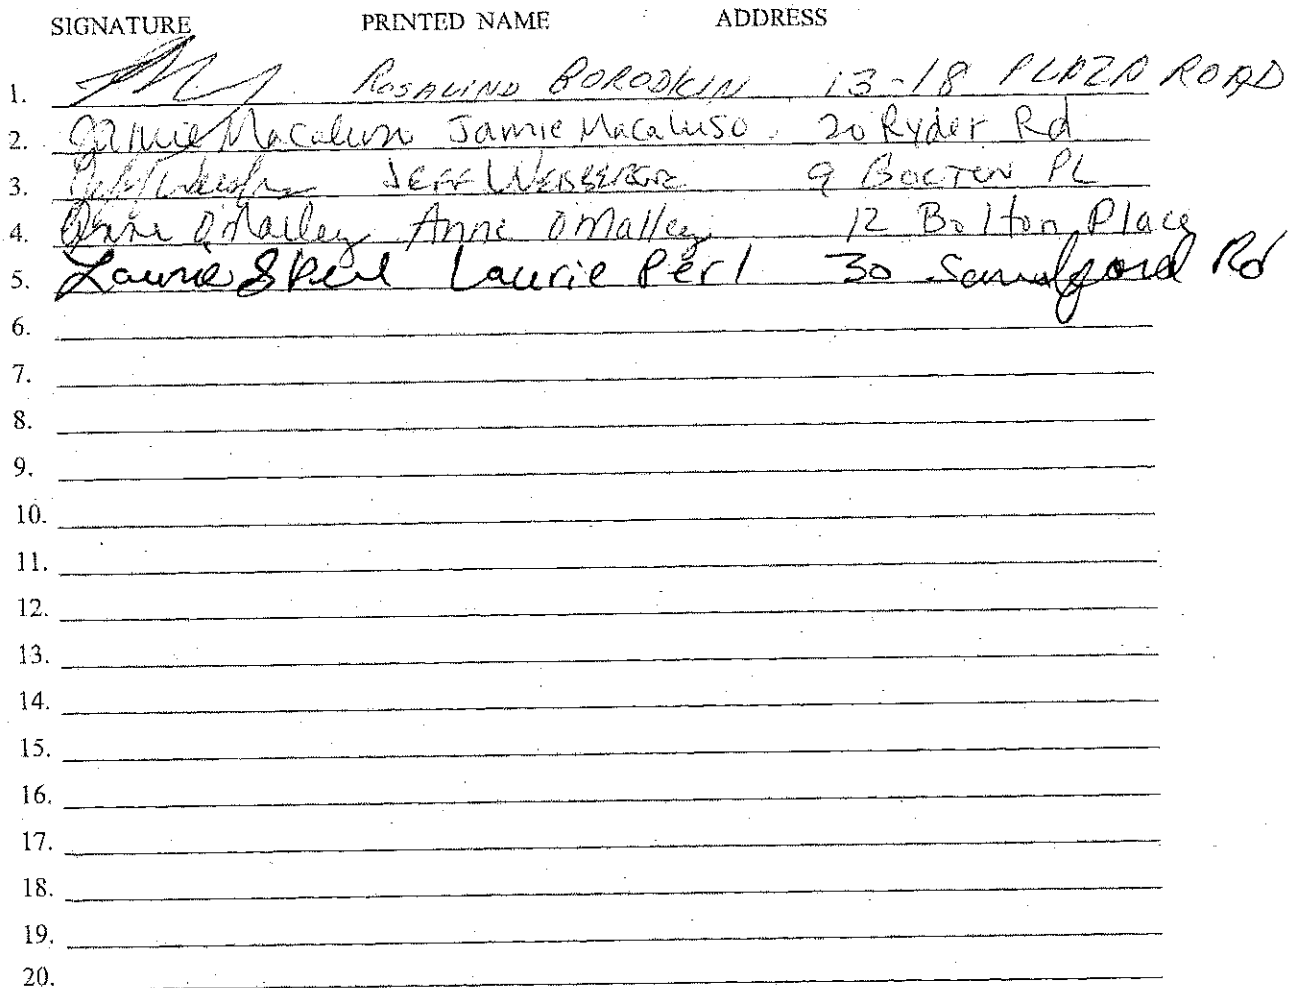 SIGNATURE PRINTED NAME ADDRESS
1. ROSALIND BORODKIN 13-18 PLAZA ROAD
2. Jamie Macaluso Jamie Macaluso 20 Ryder Rd
3. JEFF WEISBERG 9 BOLTON PL
4. Anne O'Malley Anne O'Malley 12 Bolton Place
5. Laurie S Perl Laurie Perl 30 Sandford Rd
6.
7.
8.
9.
10.
11.
12.
13.
14.
15.
16.
17.
18.
19.
20.